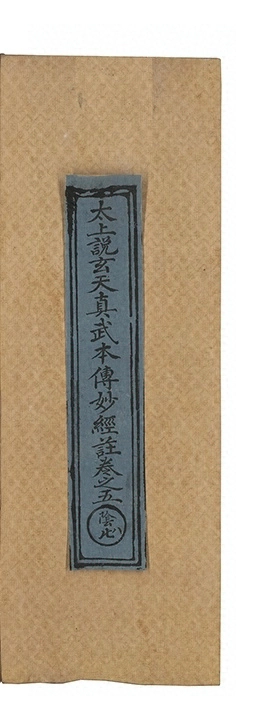 太上說玄天真武本傳妙經註卷之五
陰八